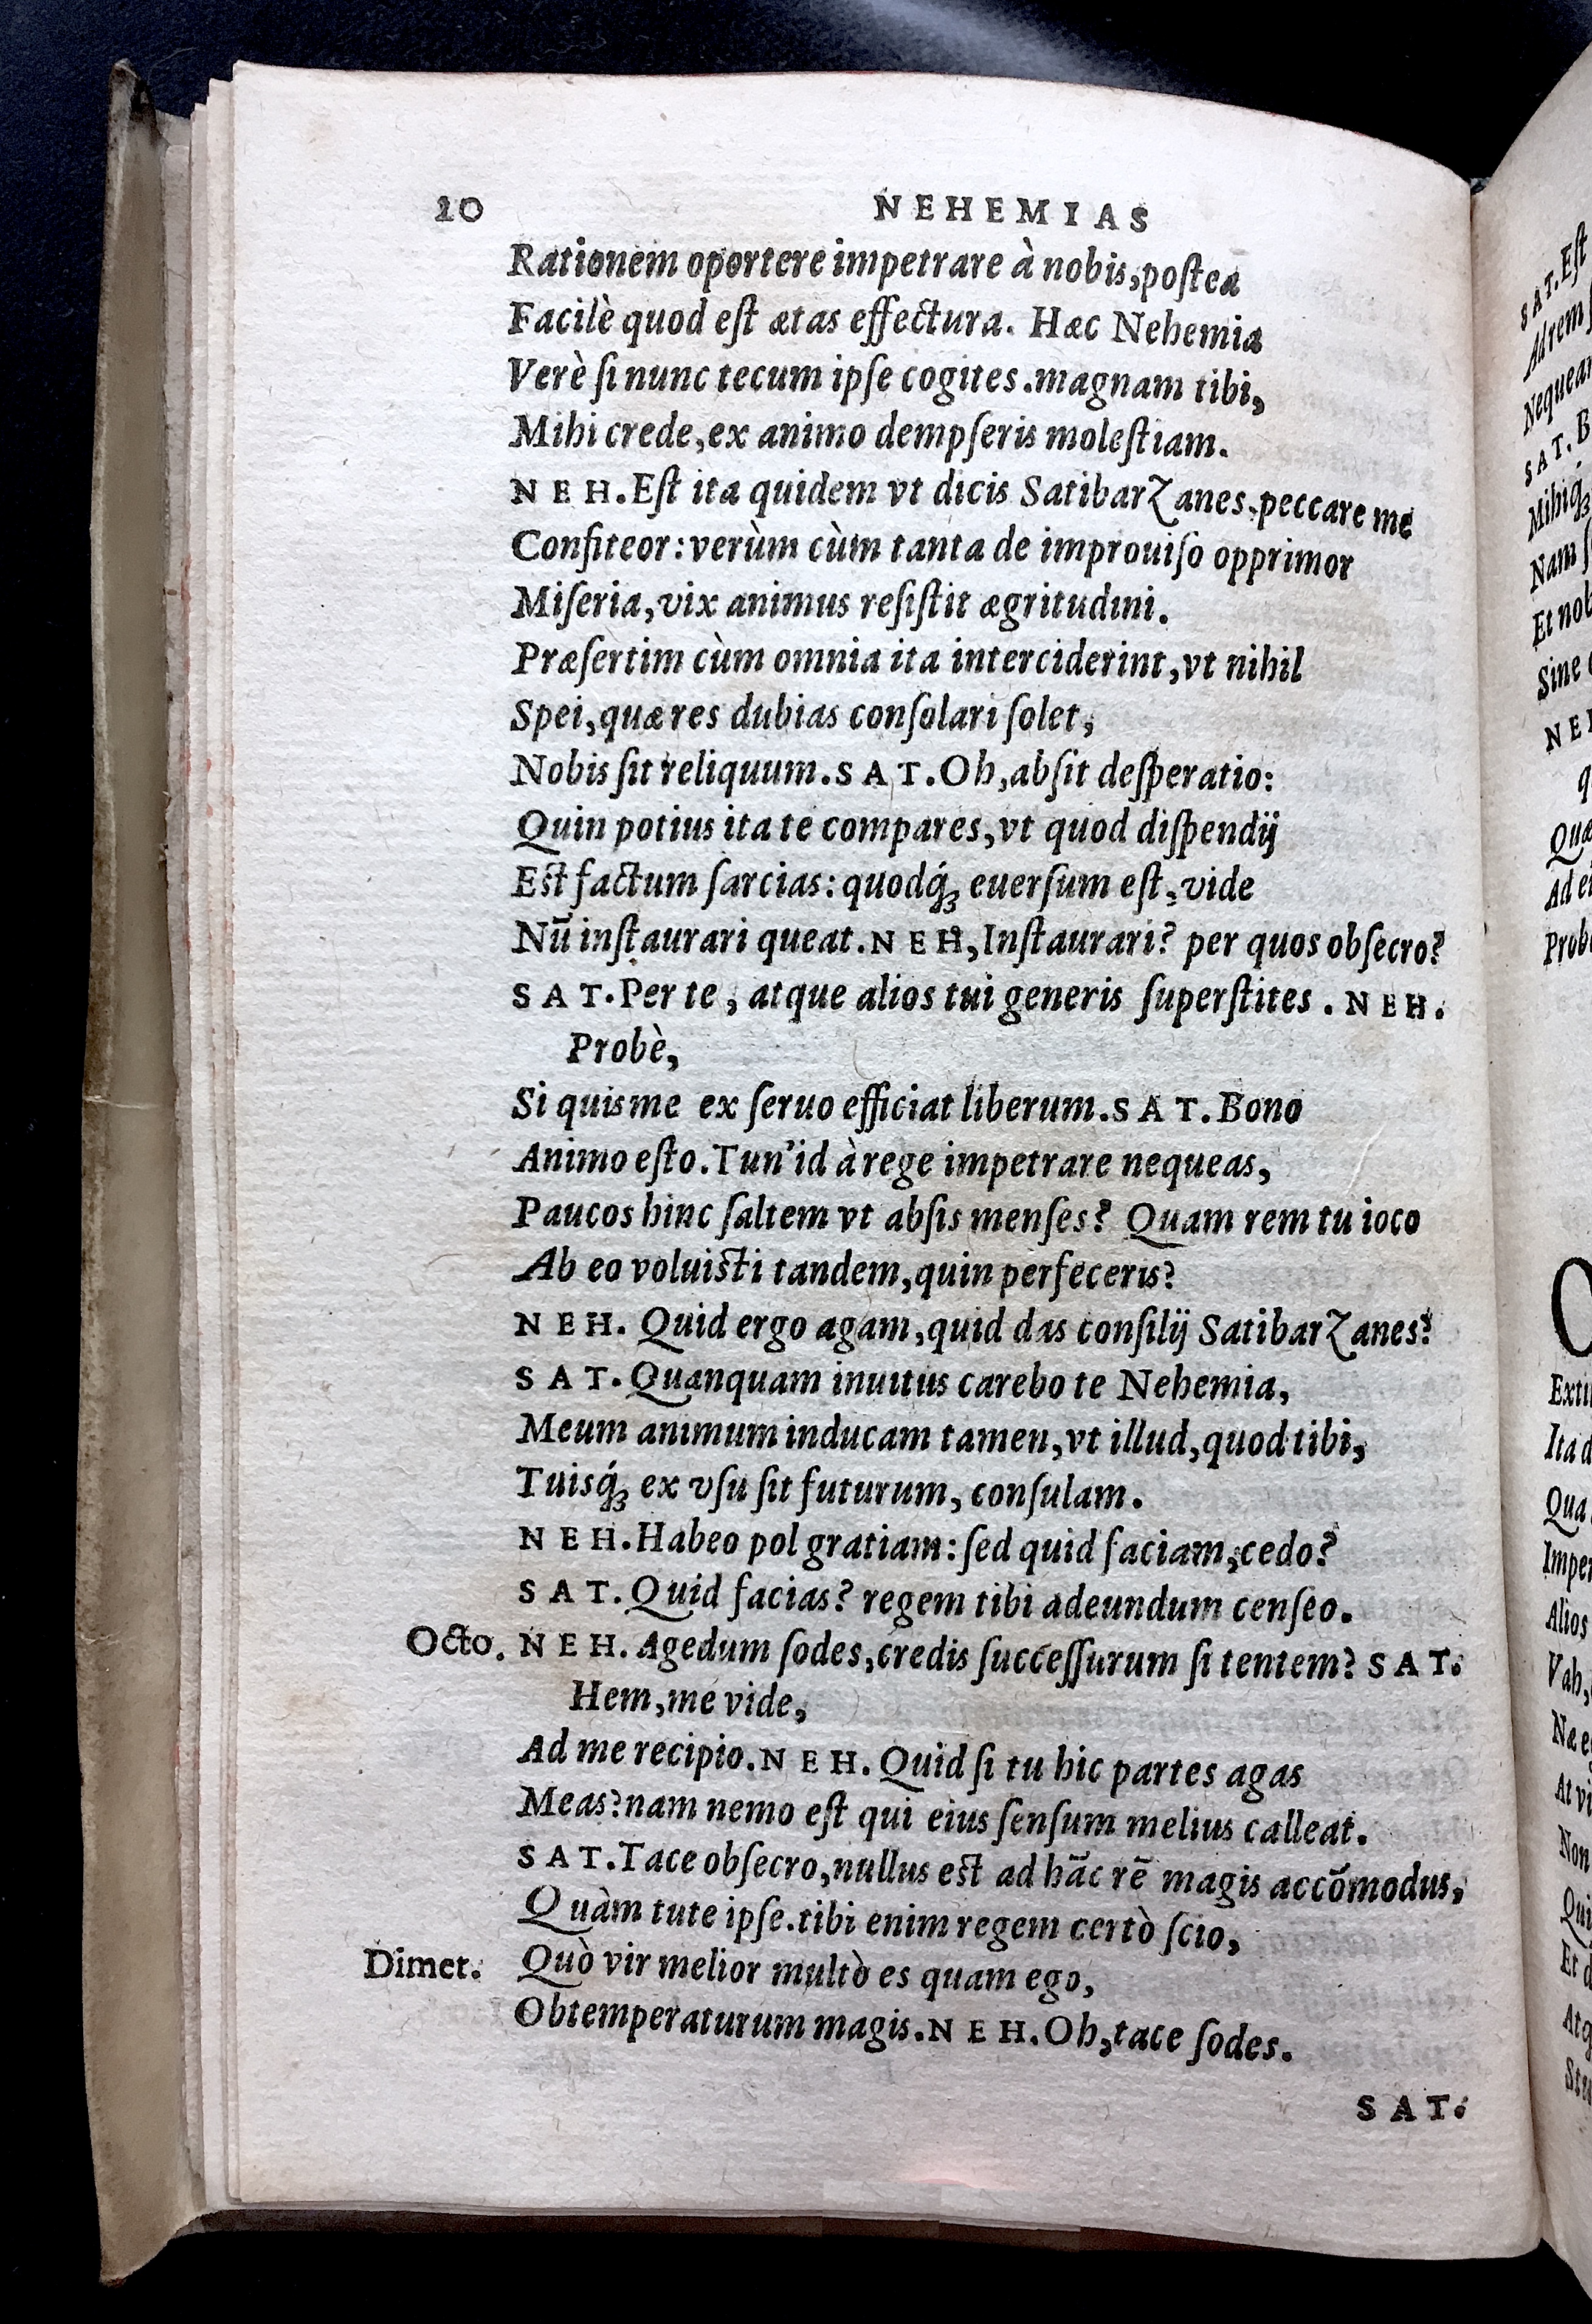 20 NEHEMIAS
Rationem oportere impetrare à nobis, postea
Facilè quod est ætas effectura. Hæc Nehemia
Verè si nunc tecum ipse cogites. magnam tibi,
Mihi crede, ex animo dempseris molestiam.
NEH. Est ita quidem vt dicis Satibarzanes, peccare me
Confiteor: verùm cùm tanta de improuiso opprimor
Miseria, vix animus resistit ægritudini.
Præsertim cùm omnia ita interciderint, vt nihil
Spei, quæ res dubias consolari solet,
Nobis sit reliquum. SAT. Oh, absit desperatio:
Quin potius ita te compares, vt quod dispendij
Est factum sarcias: quodq́ꝫ euersum est, vide
Nū instaurari queat. NEH, Instaurari? per quos obsecro?
SAT. Per te, atque alios tui generis superstites. NEH.
Probè,
Si quis me ex seruo efficiat liberum. SAT. Bono
Animo esto. Tun' id à rege impetrare nequeas,
Paucos hinc saltem vt absis menses? Quam rem tu ioco
Ab eo voluisti tandem, quin perfeceris?
NEH. Quid ergo agam, quid das consilij Satibarzanes?
SAT. Quanquam inuitus carebo te Nehemia,
Meum animum inducam tamen, vt illud, quod tibi,
Tuisq́ꝫ ex vsu sit futurum, consulam.
NEH. Habeo pol gratiam: sed quid faciam, cedo?
SAT. Quid facias? regem tibi adeundum censeo.
Octo. NEH. Agedum sodes, credis successurum si tentem? SAT.
Hem, me vide,
Ad me recipio. NEH. Quid si tu hic partes agas
Meas? nam nemo est qui eius sensum melius calleat.
SAT. Tace obsecro, nullus est ad hāc rē magis accōmodus,
Quàm tute ipse. tibi enim regem certò scio,
Dimet. Quò vir melior multò es quam ego,
Obtemperaturum magis. NEH. Oh, tace sodes.
SAT.